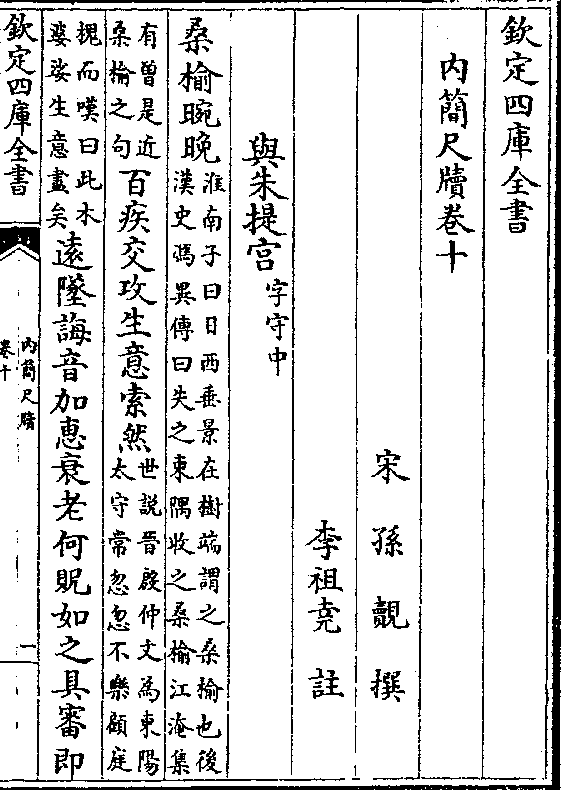 欽定四庫全書
內簡尺牘卷十
宋孫覿撰
李祖堯註
與朱提宮字守中
桑榆晼晚淮南子曰日西垂景在樹端謂之桑榆也後
漢史馮異傳曰失之東隅收之桑榆江淹集
有曽是近
桑榆之句百疾交攻生意索然世説晉殷仲文為東陽
太守常忽忽不樂顧庭
槐而嘆曰此木
婆娑生意盡矣逺墜誨音加惠衰老何貺如之具審即
欽定四庫全書
內簡尺牘
卷十
一